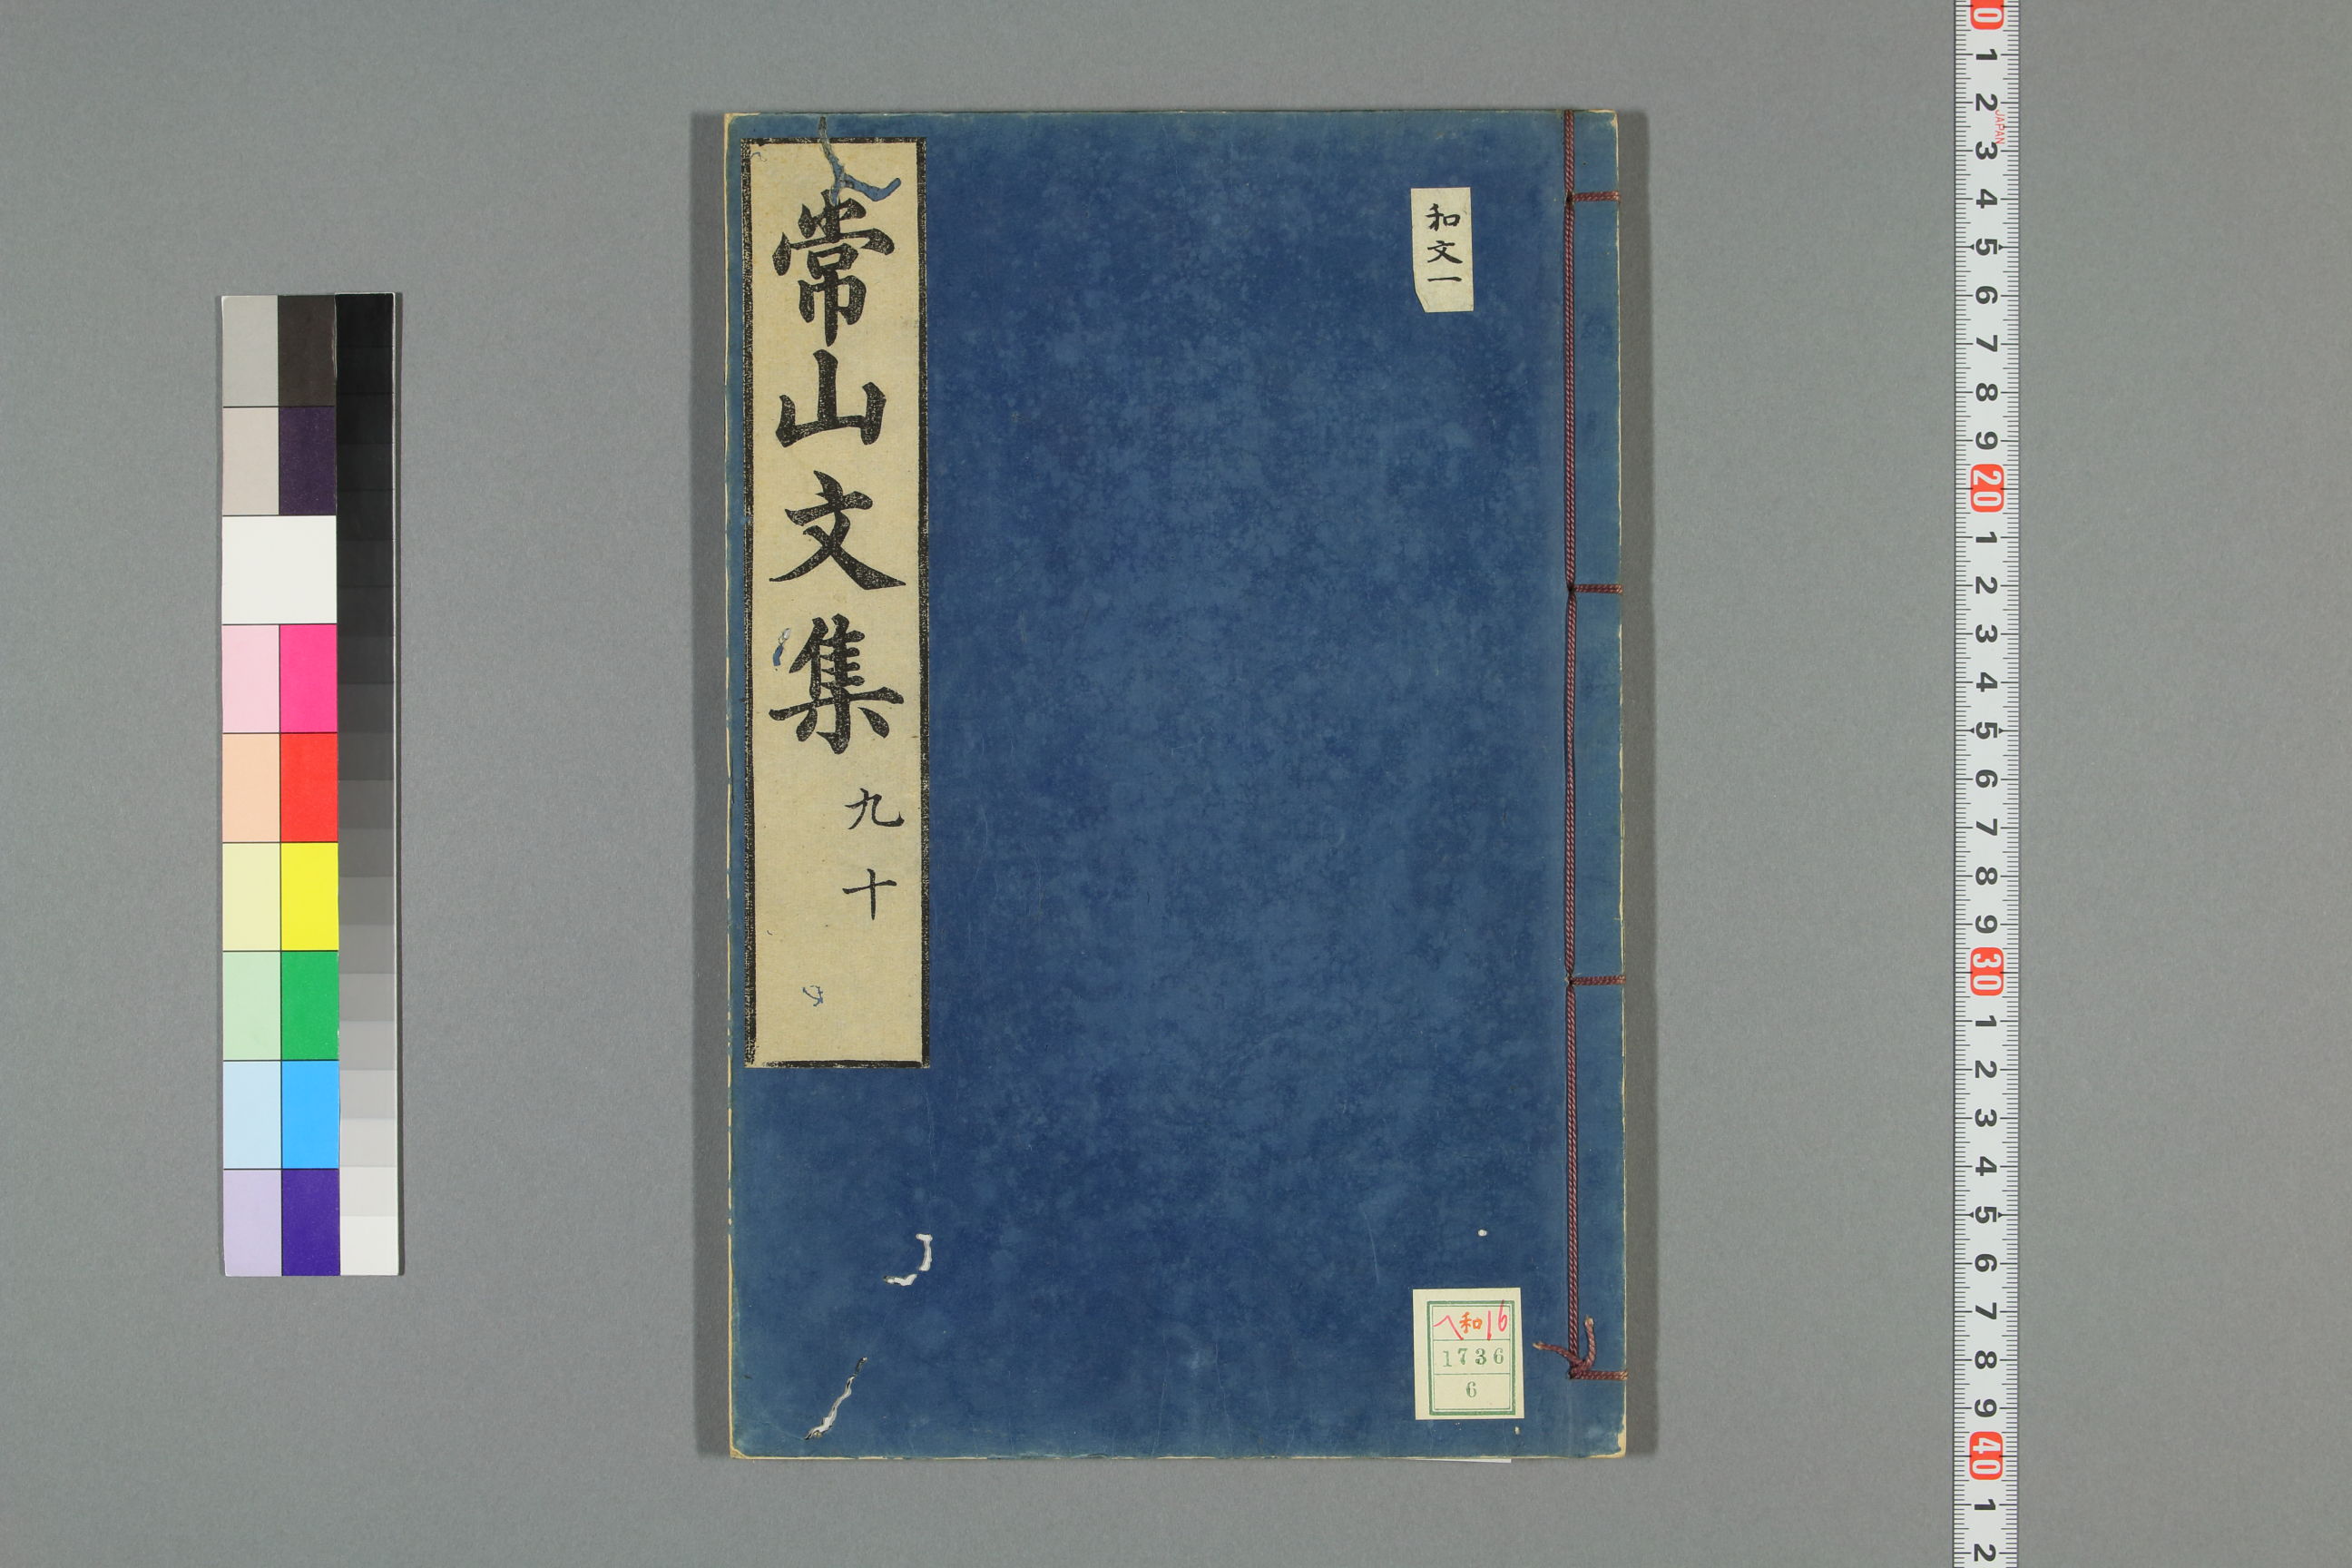 常山文集
九
十
和文一
ヘ和16
1736
6
0
1
2
JAPAN
3
4
5
6
7
8
9
20
1
2
3
4
5
6
7
8
9
30
1
2
3
4
5
6
7
8
9
40
1
2